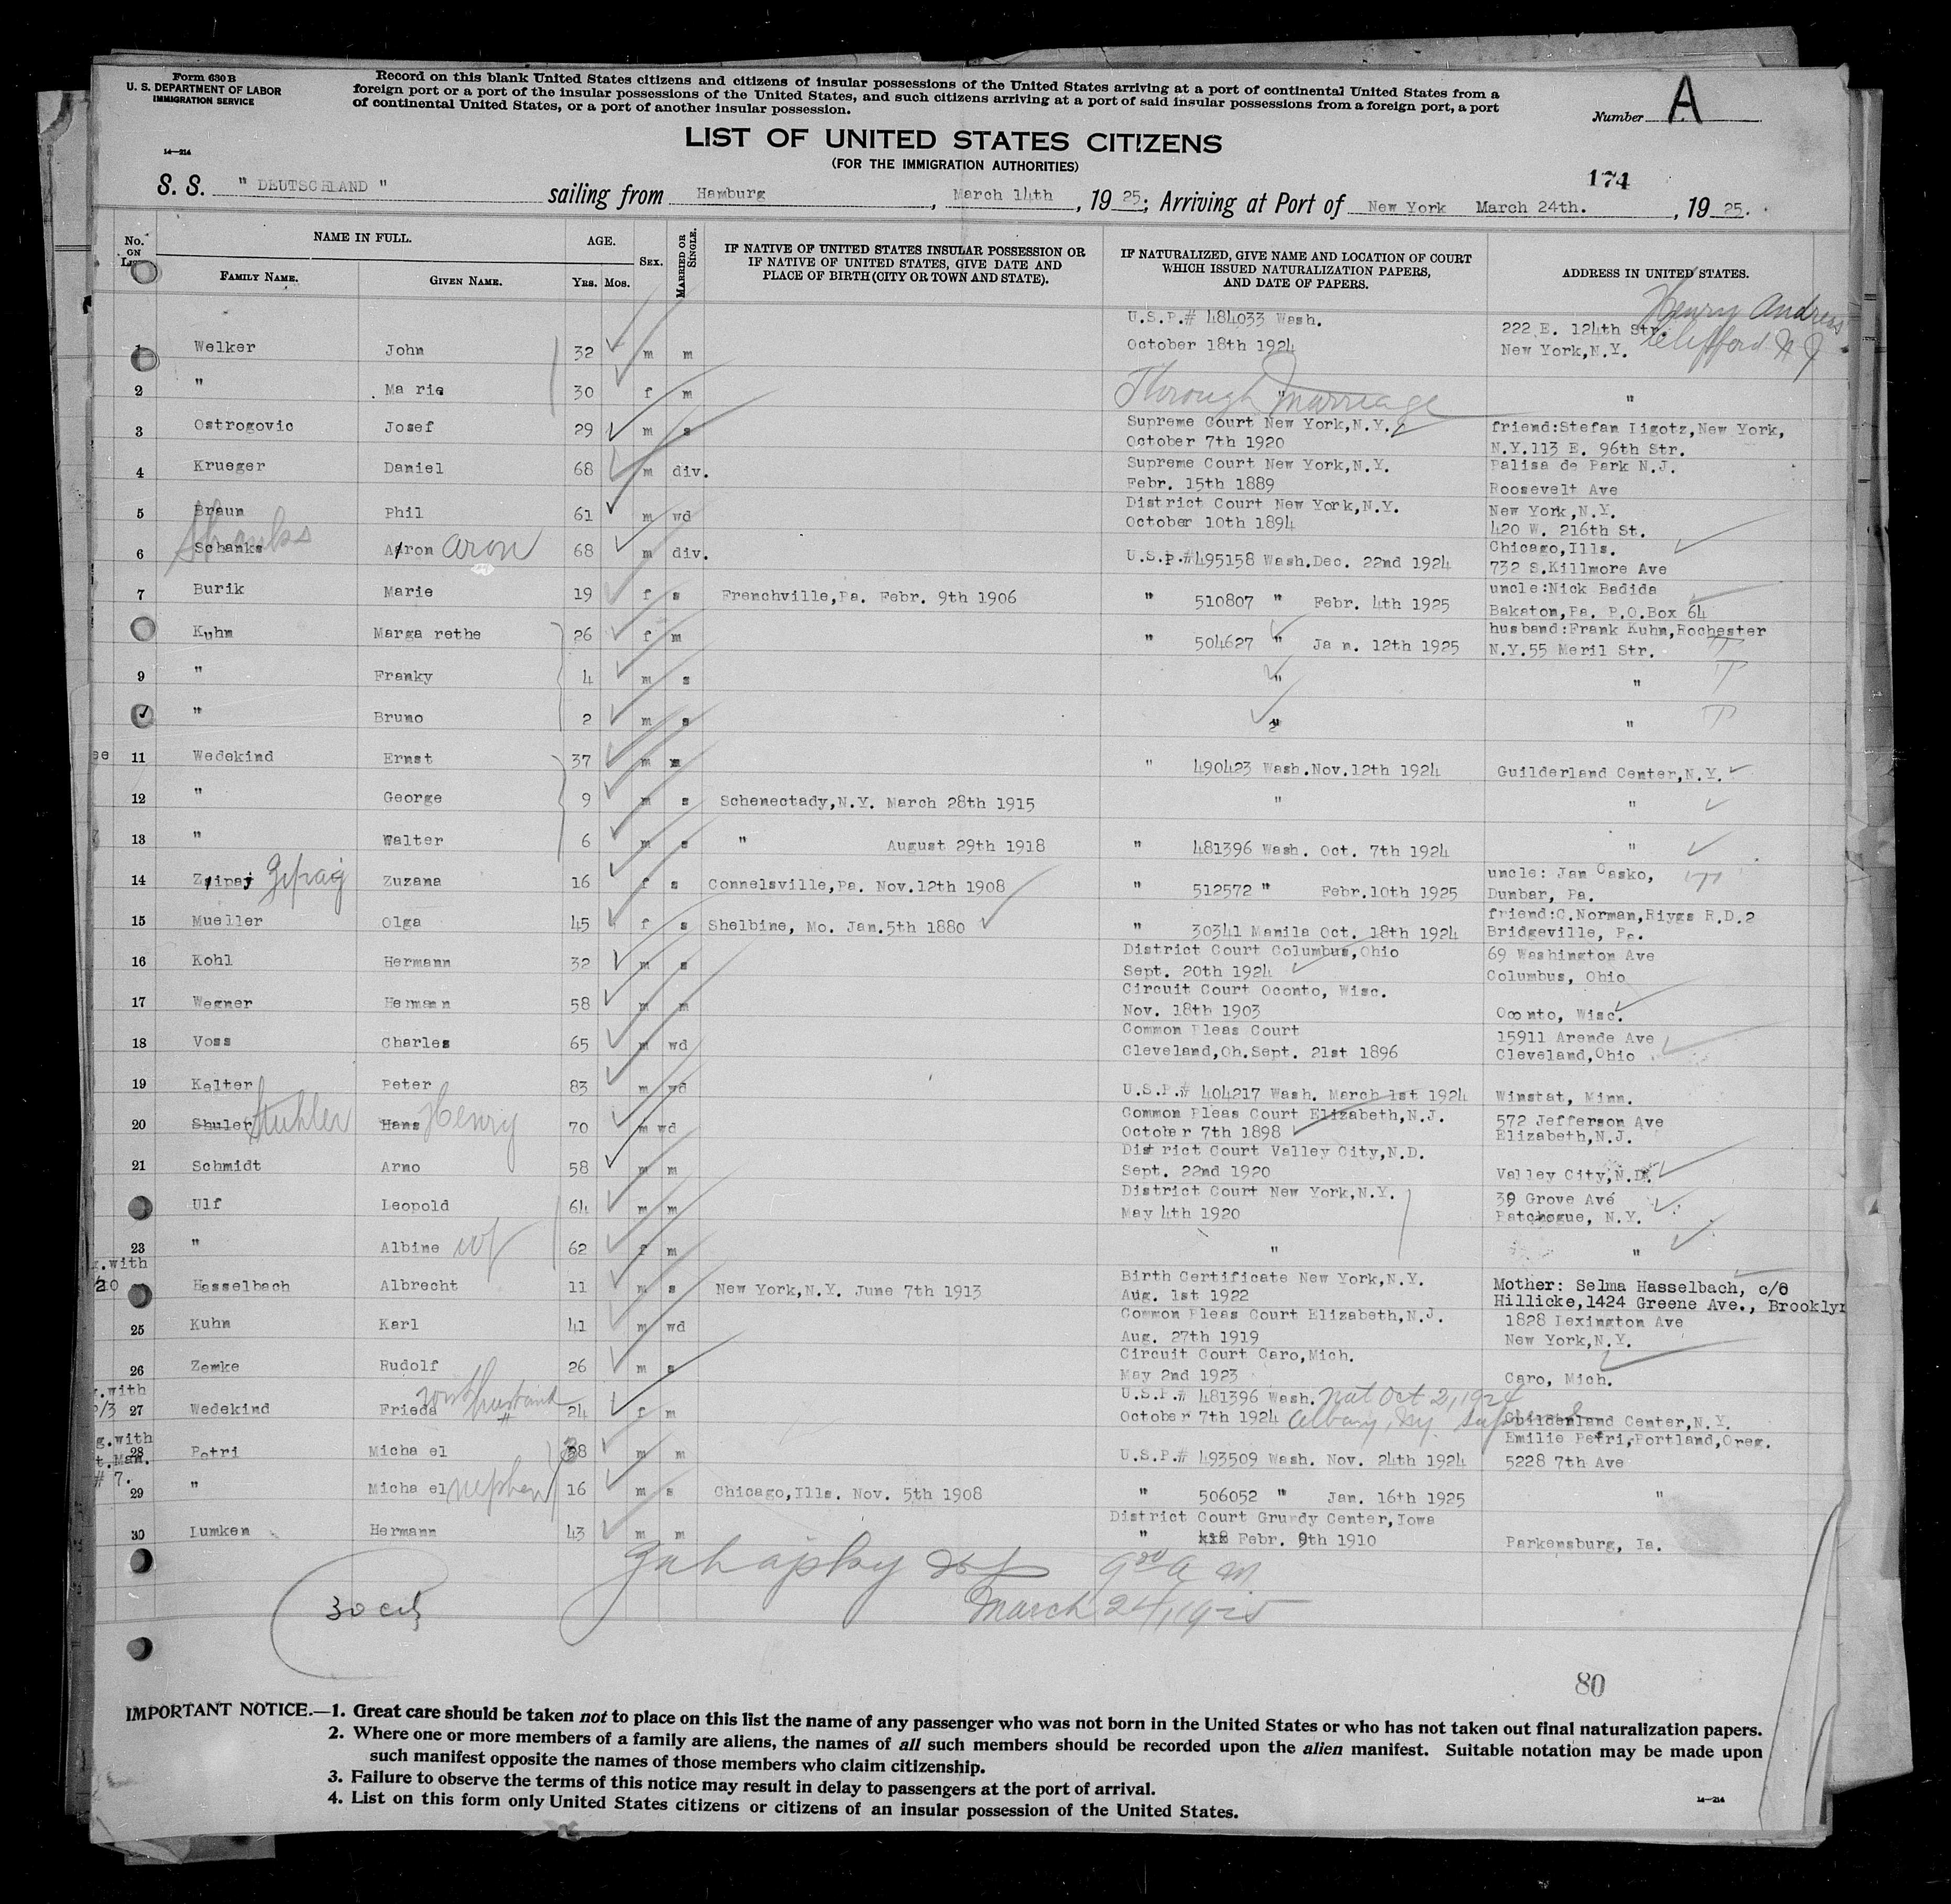 Form 630 B
U. S. DEPARTMENT OF LABOR
IMMIGRATION SERVICE
Record on this blank United States citizens and citizens of insular possessions of the United States arriving at a port of continental United States from a
foreign port or a port of the insular possessions of the United States, and such citizens arriving at a port of said insular possessions from a foreign port, a port
of continental United States, or a port of another insular possession.
Number A
LIST OF UNITED STATES CITIZENS
(FOR THE IMMIGRATION AUTHORITIES)
14—214
174
S. S. " DEUTSCHLAND " sailing from Hamburg, March 14th, 1925; Arriving at Port of New York March 24th., 1925.
No. ON LIST NAME IN FULL. FAMILY NAME. GIVEN NAME. AGE. YRS. MOS. SEX. MARRIED OR SINGLE.
IF NATIVE OF UNITED STATES INSULAR POSSESSION OR
IF NATIVE OF UNITED STATES, GIVE DATE AND
PLACE OF BIRTH (CITY OR TOWN AND STATE).
IF NATURALIZED, GIVE NAME AND LOCATION OF COURT
WHICH ISSUED NATURALIZATION PAPERS,
AND DATE OF PAPERS.
ADDRESS IN UNITED STATES.
Henry Andres
Cliffford N J
1 Welker John 32 m m U.S.P.# 484033 Wash. October 18th 1924 222 E. 124th Str. New York,N.Y.
2 " Marie 30 f m " Through marriage "
3 Ostrogovic Josef 29 m s Supreme Court New York,N.Y. October 7th 1920 friend:Stefan Ligotz,New York, N.Y.113 E. 96th Str.
4 Krueger Daniel 68 m div. Supreme Court New York,N.Y. Febr. 15th 1889 Palisa de Park N.J. Roosevelt Ave
5 Braun Phil 61 m wd District Court New York,N.Y. October 10th 1894 New York,N.Y. 420 W. 216th St.
6 Schanks Shanks Aaron Aron 68 m div. U.S.P.#495158 Wash.Dec. 22nd 1924 Chicago,Ills. 732 S.Killmore Ave
7 Burik Marie 19 f s Frenchville,Pa. Febr. 9th 1906 " 510807 " Febr. 4th 1925 uncle:Nick Badida Bakaton,Pa. P.O.Box 64
Kuhn Margarethe 26 f m " 504627 " Jan. 12th 1925 husband:Frank Kuhn,Rochester N.Y.55 Meril Str.
9 " Franky 4 m s " "
" Bruno 2 m s " "
11 Wedekind Ernst 37 m m " 490423 Wash.Nov.12th 1924 Guilderland Center,N.Y.
12 " George 9 m s Schenectady,N.Y. March 28th 1915 " "
13 " Walter 6 m s " August 29th 1918 " 481396 Wash. Oct. 7th 1924 "
14 Zsipaj Zuzana 16 f s Connelsville,Pa. Nov.12th 1908 " 512572 " Febr.10th 1925 uncle: Jan Casko, Dunbar, Pa.
15 Mueller Olga 45 f s Shelbine, Mo. Jan.5th 1880 " 30341 Manila Oct. 18th 1924 friend:C.Norman,Riygs R.D.2 Bridgeville, Pa.
16 Kohl Hermann 32 m s District Court Columbus,Ohio Sept. 20th 1924 69 Washington Ave Columbus, Ohio
17 Wegner Hermann 58 m m Circuit Court Oconto, Wisc. Nov. 18th 1903 Oconto, Wisc.
18 Voss Charles 65 m wd Common Pleas Court Cleveland,Oh.Sept. 21st 1896 15911 Arende Ave Cleveland,Ohio
19 Kalter Peter 83 m wd U.S.P.# 404217 Wash. March 1st 1924 Winstat, Minn.
20 Shuler Stuhler Hans Henry 70 m wd Common Pleas Court Elizabeth,N.J. October 7th 1898 572 Jefferson Ave Elizabeth,N.J.
21 Schmidt Arno 58 m m District Court Valley City,N.D. Sept. 22nd 1920 Valley City,N.D.
Ulf Leopold 64 m m District Court New York,N.Y. May 4th 1920 39 Grove Ave Patchogue, N.Y.
23 " Albine wf 62 f m " "
Hasselbach Albrecht 11 m s New York,N.Y. June 7th 1913 Birth Certificate New York,N.Y. Aug. 1st 1922 Mother: Selma Hasselbach, c/o Hillicke,1424 Greene Ave., Brooklyn
25 Kuhn Karl 41 m wd Common Pleas Court Elizabeth,N.J. Aug. 27th 1919 1828 Lexington Ave New York,N.Y.
26 Zemke Rudolf 26 m s Circuit Court Caro,Mich. May 2nd 1923 Caro, Mich.
27 Wedekind Frieda with husband 24 f m U.S.P.# 481396 Wash. October 7th 1924 Nat Oct 2, 1924 Albany, Ny. Supreme Guilderland Center,N.Y.
28 Petri Michael 38 m m U.S.P.# 493509 Wash. Nov. 24th 1924 Emilie Petri,Portland,Oreg. 5228 7th Ave
29 " Michael nephew 16 m s Chicago,Ills. Nov. 5th 1908 " 506052 " Jan. 16th 1925 "
30 Lumken Hermann 43 m m District Court Grundy Center,Iowa " Febr. 9th 1910 Parkensburg, Ia.
9 00 A M
March 24, 1925
30
80
IMPORTANT NOTICE.—1. Great care should be taken not to place on this list the name of any passenger who was not born in the United States or who has not taken out final naturalization papers.
2. Where one or more members of a family are aliens, the names of all such members should be recorded upon the alien manifest. Suitable notation may be made upon
such manifest opposite the names of those members who claim citizenship.
3. Failure to observe the terms of this notice may result in delay to passengers at the port of arrival.
4. List on this form only United States citizens or citizens of an insular possession of the United States.
14—214